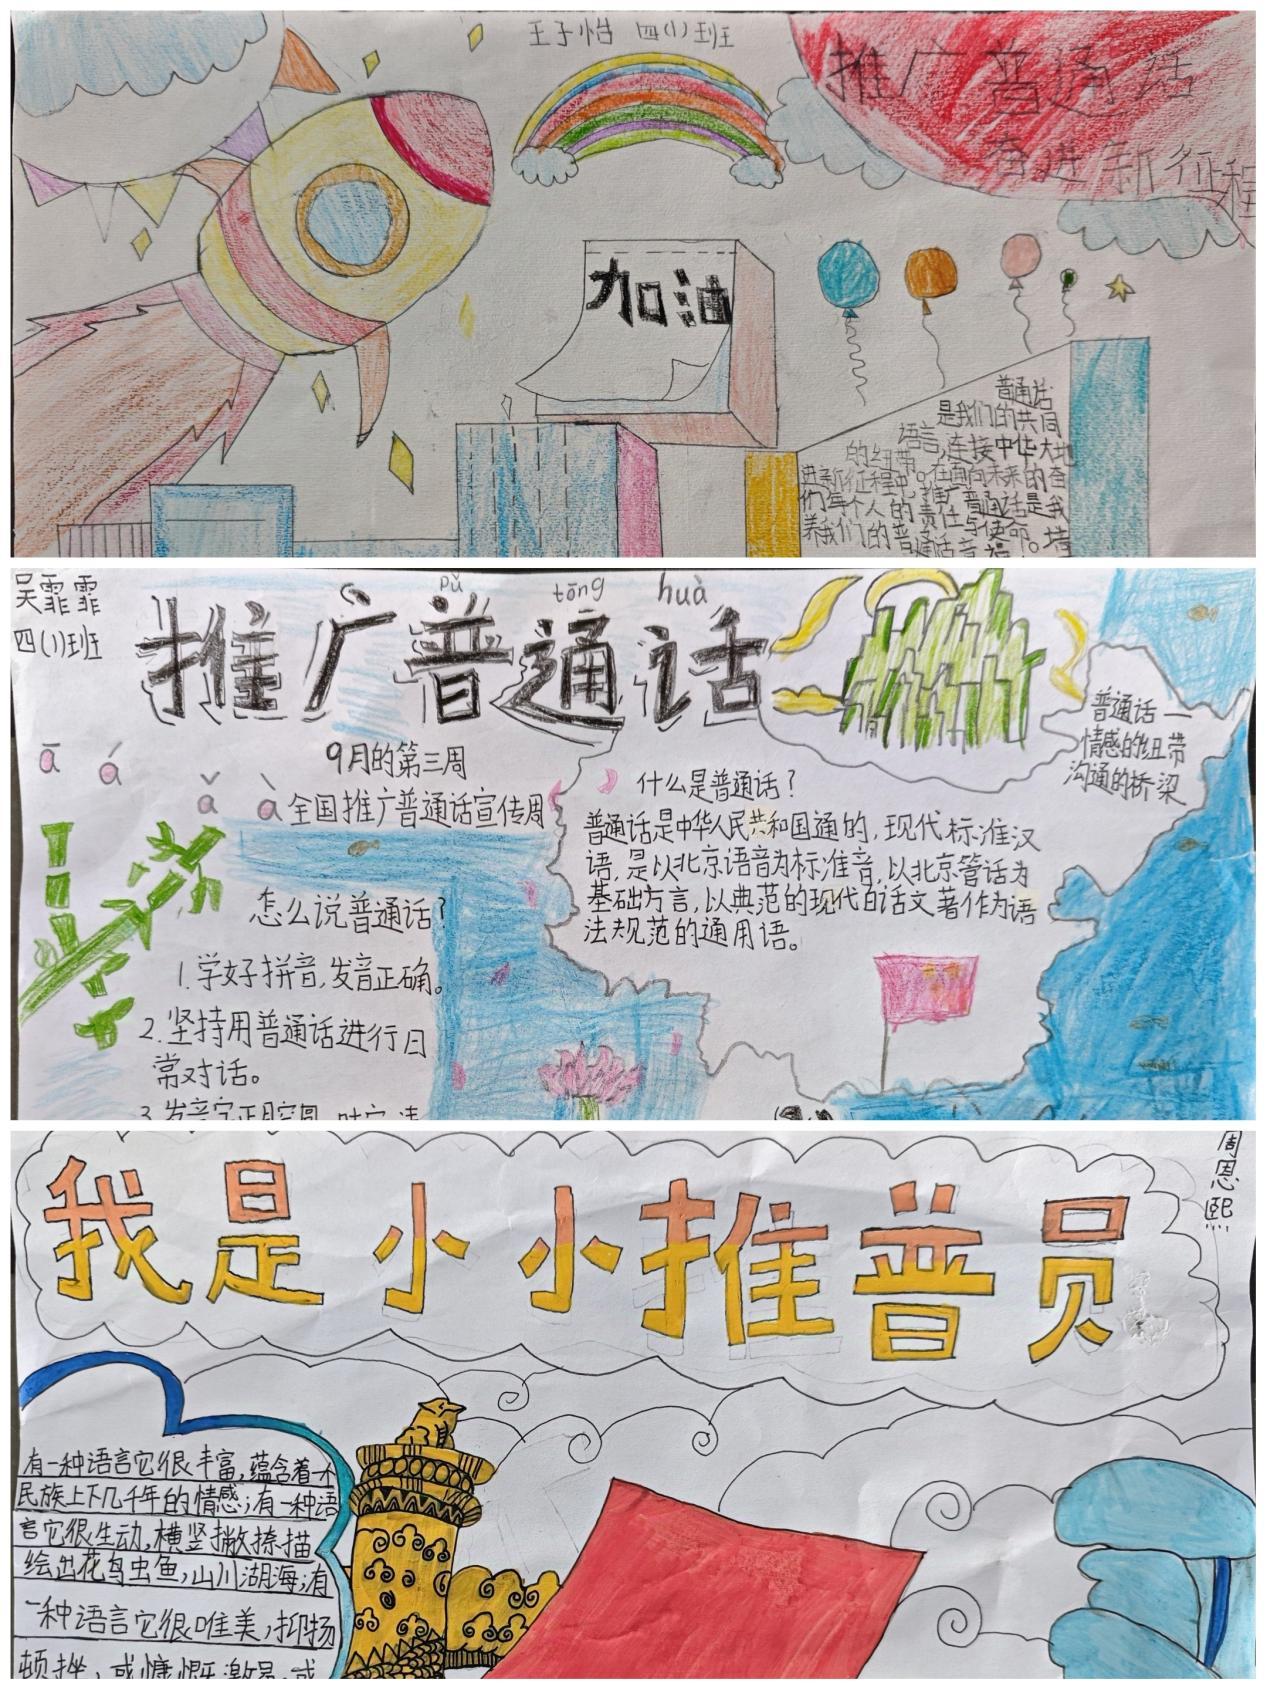 王子怡 四(1)班
推广普通话
奋进新征程
加油
普通话
是我们的共同
语言,连接中华大地
的纽带。在通向未来的奋
进新征程中,推广普通话是我
们每个人的责任与使命。培
养我们的普通话音
吴霏霏
四(1)班
pǔ tōng huà
推广普通话
ā á ǎ à
9月的第三周
全国推广普通话宣传周
怎么说普通话?
1.学好拼音,发音正确。
2.坚持用普通话进行日
常对话。
什么是普通话?
普通话是中华人民共和国通的,现代标准汉
语,是以北京语音为标准音,以北京管话为
基础方言,以典范的现代白话文著作为语
法规范的通用语。
普通话一
情感的纽带
沟通的桥梁
周恩熙
我是小小推普员
有一种语言它很丰富,蕴含着一个
民族上下几千年的情感;有一种语
言它很生动,横竖撇捺描
绘出花鸟虫鱼,山川湖海;有
一种语言它很唯美,抑扬
顿挫,或慷慨激昂,或